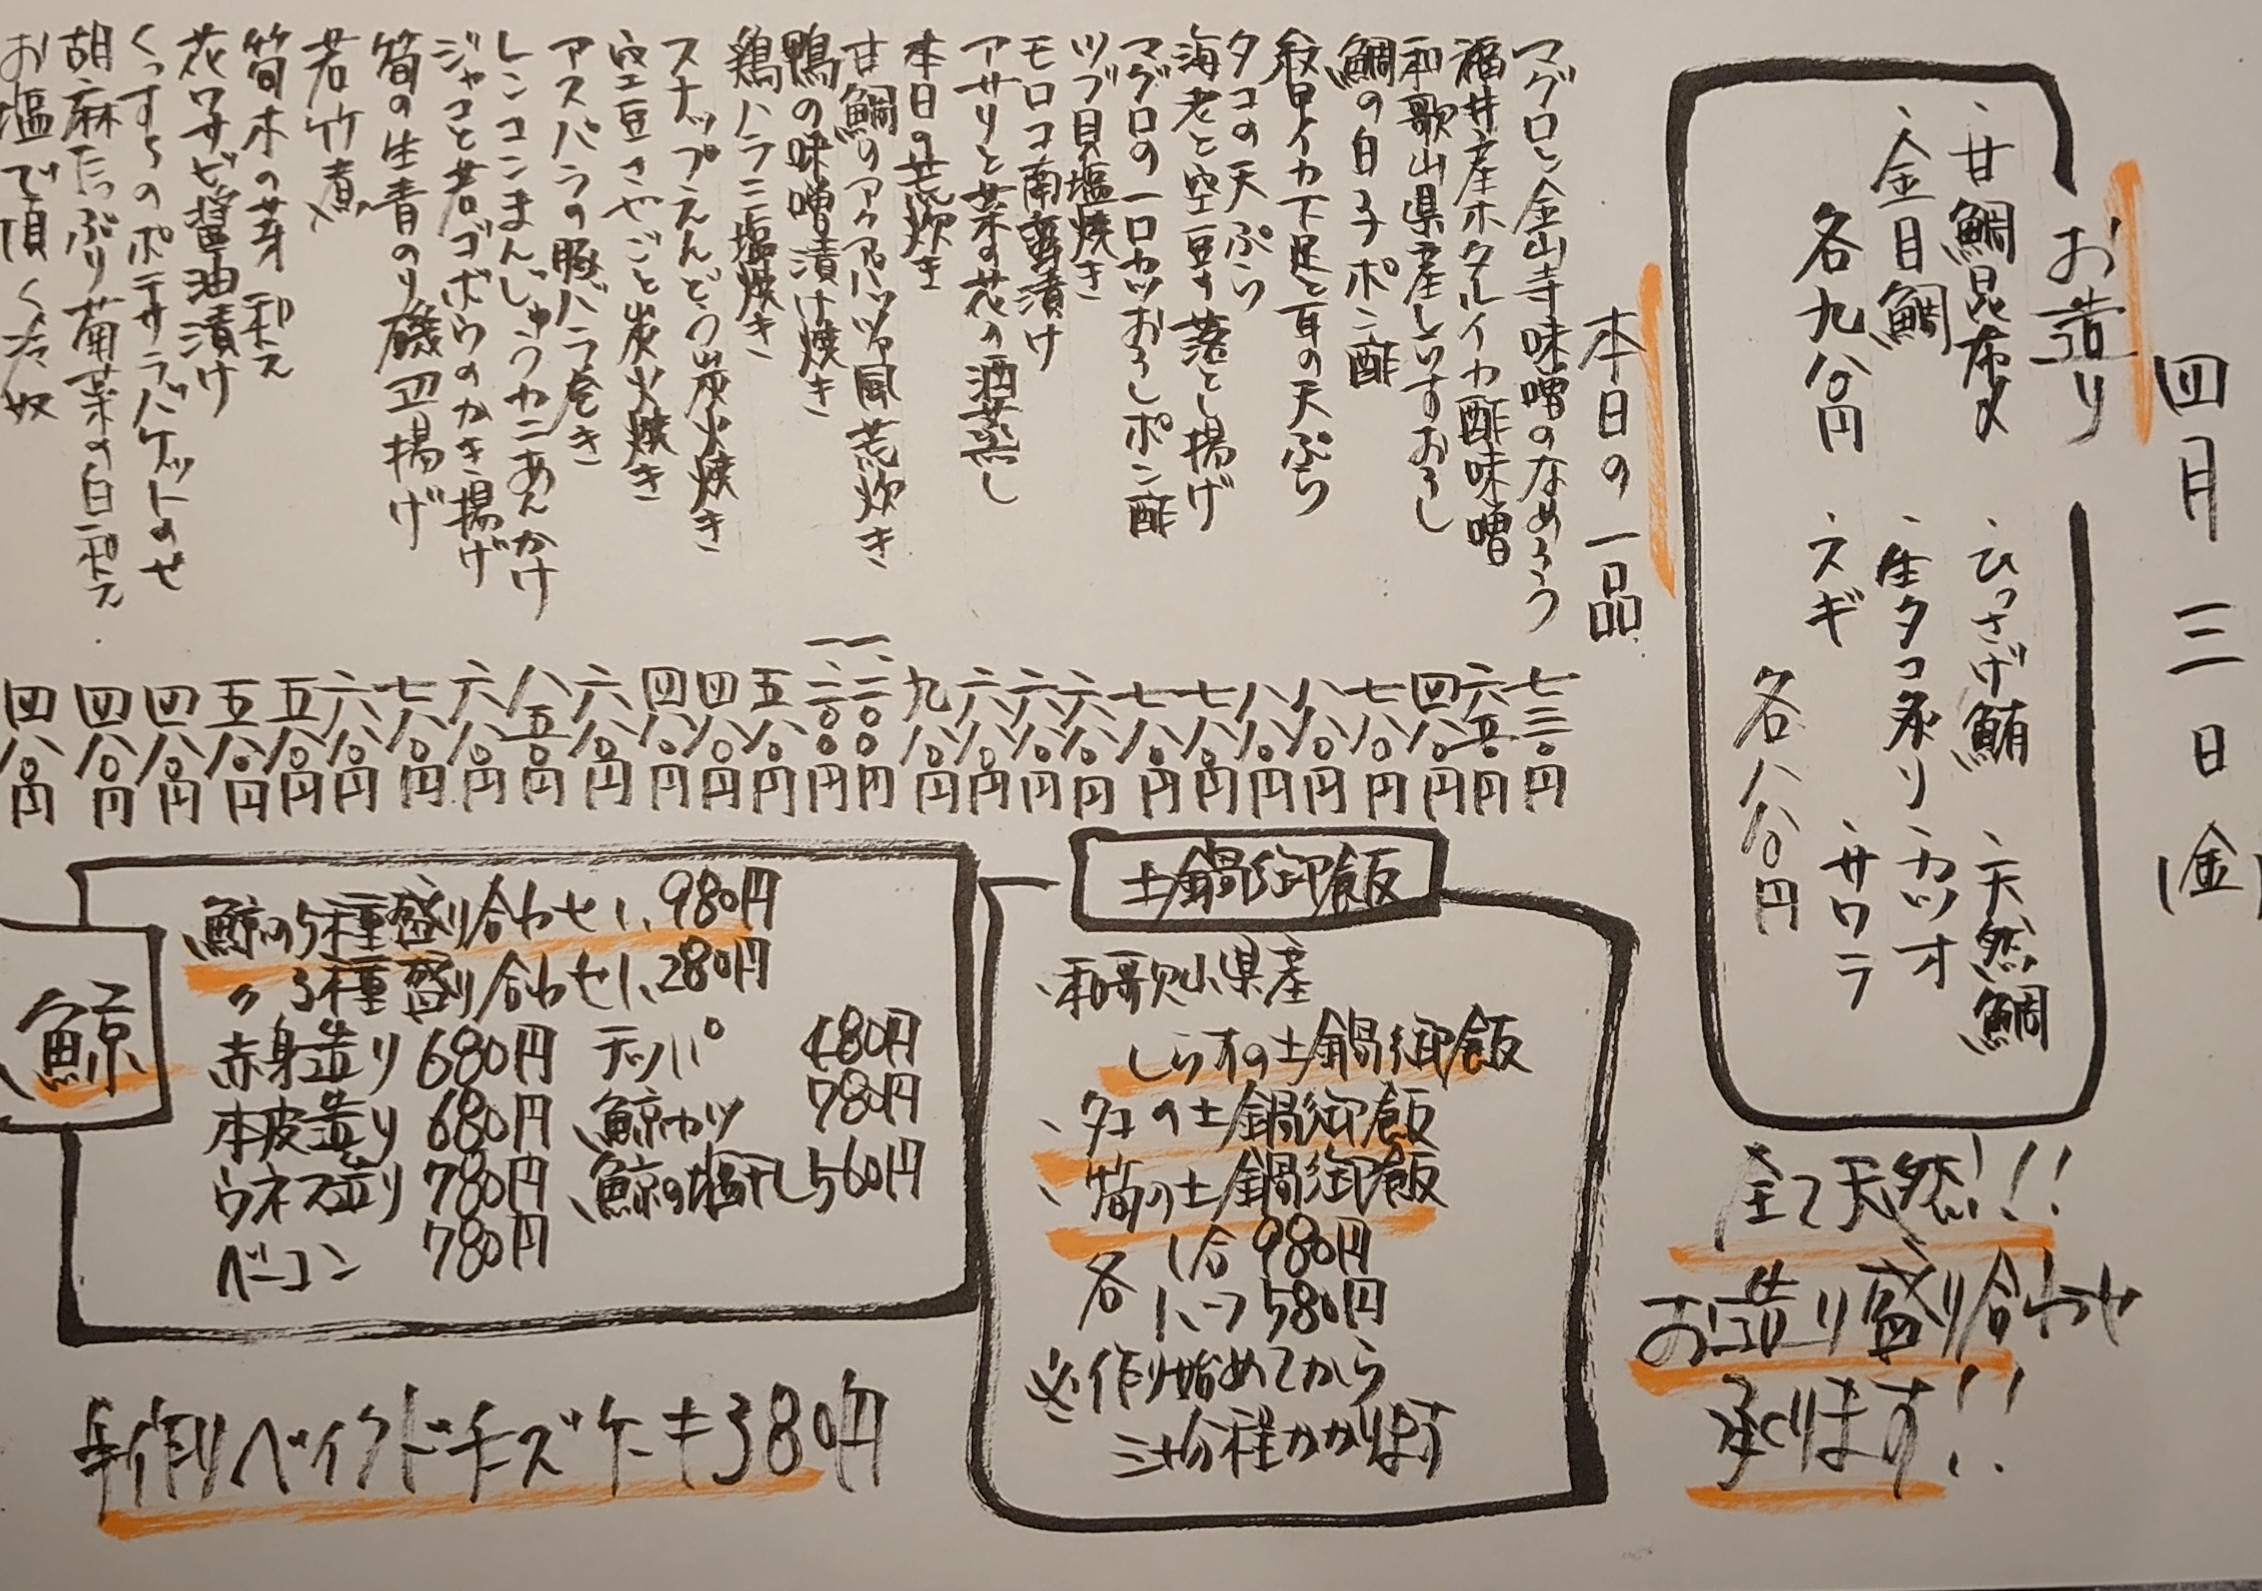 四月三日(金)
お造り
・甘鯛昆布〆
・金目鯛
各九八〇円
・ひっさげ鮪 ・天然鯛
・生タコ炙り ・カツオ
・スギ ・サワラ
各八八〇円
全て天然!!!
お造り盛り合わせ
承ります!!
本日の一品
マグロと金山寺味噌のなめろう 七三〇円
福井産ホタルイカ酢味噌 六五〇円
和歌山県産しらすおろし 四八〇円
鯛の白子ポン酢 七八〇円
紋甲イカ下足と耳の天ぷら 八八〇円
タコの天ぷら 八八〇円
海老と空豆の落とし揚げ 七八〇円
マグロの一口カツおろしポン酢 七八〇円
ツブ貝塩焼き 六八〇円
モロコ南蛮漬け 六八〇円
アサリと菜の花の酒蒸し 六八〇円
本日の荒炊き 九八〇円
甘鯛のアクアパッツァ風荒炊き 一、二〇〇円
鴨の味噌漬け焼き 一、二〇〇円
鶏ハラミ塩焼き 五八〇円
スナップえんどう炭火焼き 四八〇円
空豆さやごと炭火焼き 四八〇円
アスパラの豚バラ巻き 六八〇円
レンコンまんじゅうカニあんかけ 八五〇円
ジャコと若ゴボウのかき揚げ 六八〇円
筍の生青のり磯辺揚げ 七八〇円
若竹煮 六八〇円
筍木の芽和え 五八〇円
花ワサビ醤油漬け 五八〇円
ポテサラバケットのせ 四八〇円
胡麻たっぷり菊菜の白和え 四八〇円
お塩で頂く冷奴 四八〇円
土鍋御飯
・和歌山県産
しらすの土鍋御飯
・タコの土鍋御飯
・筍の土鍋御飯
各 1合 980円
1、580円
※作り始めてから
三十分程かかります
鯨
鯨の5種盛り合わせ1、980円
〃 3種盛り合わせ1、280円
赤身造り 680円 テッパ 480円
本皮造り 680円 鯨カツ 780円
ウネス造り 780円 鯨の塩干し 560円
ベーコン 780円
手作りベイクドチーズケーキ380円